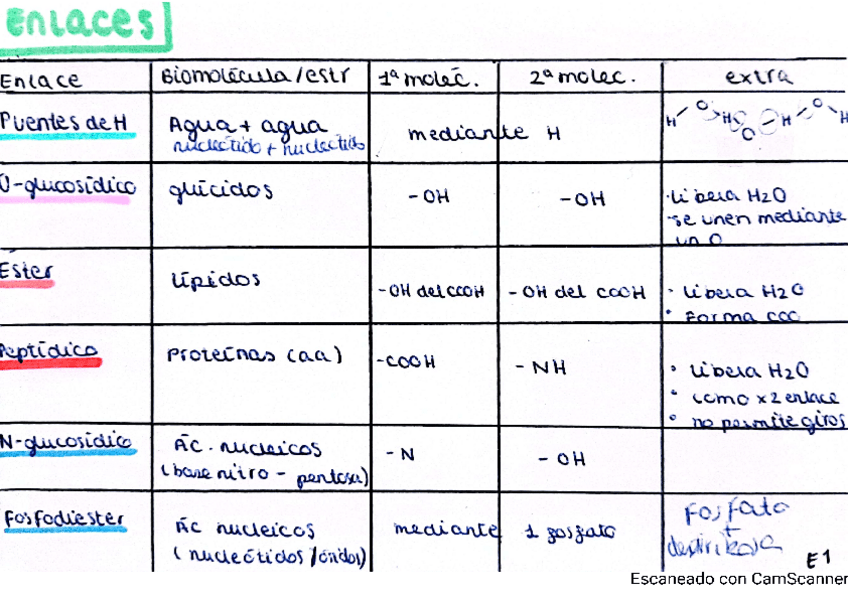 Enlaces
Enlace Biomolécula/estr 1ª moléc. 2ª molec. extra
Puentes de H Agua + agua mediante H H O H O H O H
nucleótido + nucleótido
O-glucosídico glúcidos -OH -OH ·libera H2O
·se unen mediante
un O
Éster Lípidos -OH del COOH -OH del COOH · libera H2O
· Forma COO
Peptídico Proteínas (aa) -COOH -NH · libera H2O
· como x2 enlace
· no permite giros
N-glucosídico Ác. nucleicos -N -OH
(base nitro - pentosa)
Fosfodiester Ác nucleicos mediante 1 fosfato Fosfato
+
(nucleótidos/ónidos)
E1
Escaneado con CamScanner